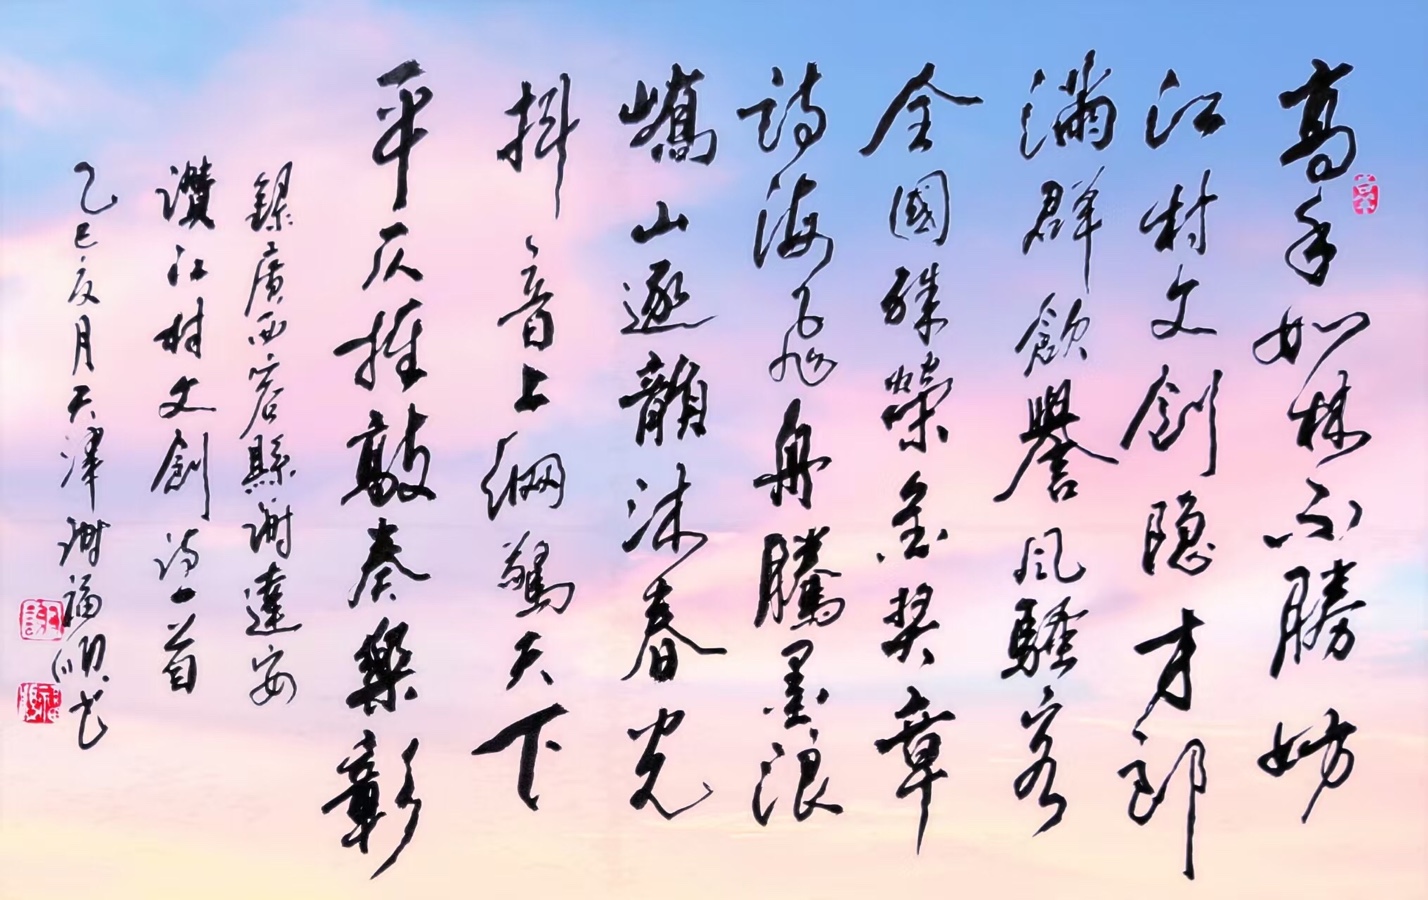 高手如林不勝妨
江村文創隐才郎
滿群飲譽风騷客
全國殊榮金奖章
詩海飞舟騰墨浪
嶠山逐韻沐春光
抖音上網驚天下
平仄推敲奏樂彰
錄廣西容縣謝達安
讚江村文創詩一首
乙巳亥月天津谢福順书